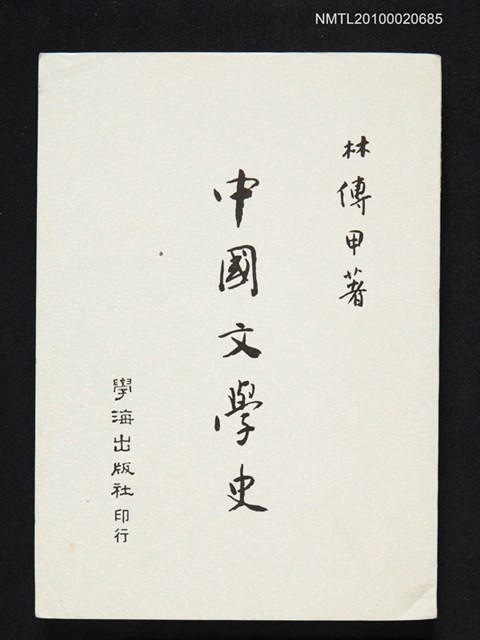 NMTL20100020685
林傳甲著
中國文學史
學海出版社印行